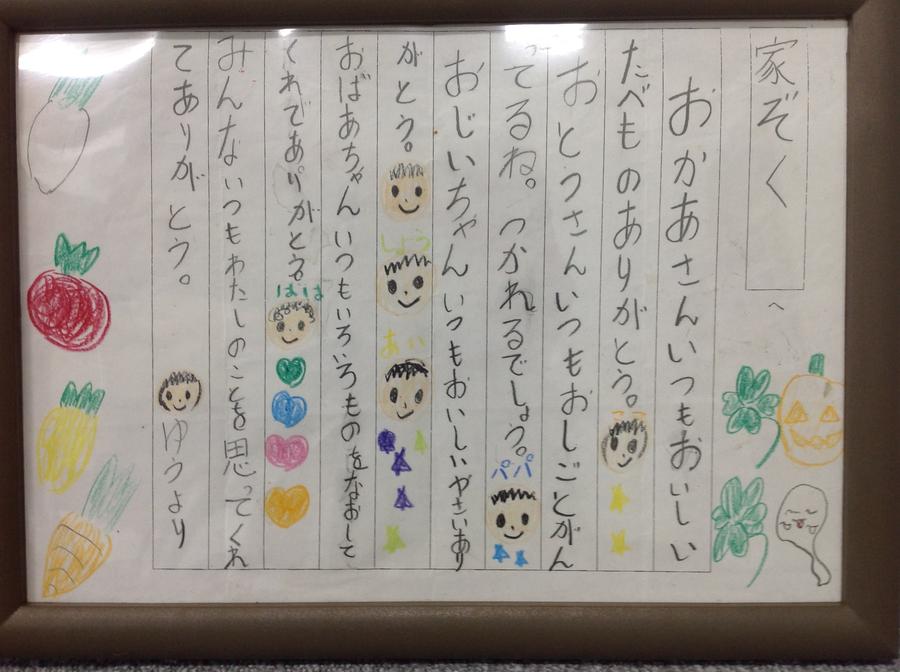 家ぞくへ
おかあさんいつもおいしい
たべものありがとう。
おとうさんいつもおしごとがん
てるね。つかれるでしょう。
パパ
おじいちゃんいつもおいしいやさいあり
がとう。
しょう
あい
おばあちゃんいつもいろいろものをなおして
くれてありがとう。
はは
みんないつもわたしのことを思ってくれ
てありがとう。
ゆうより